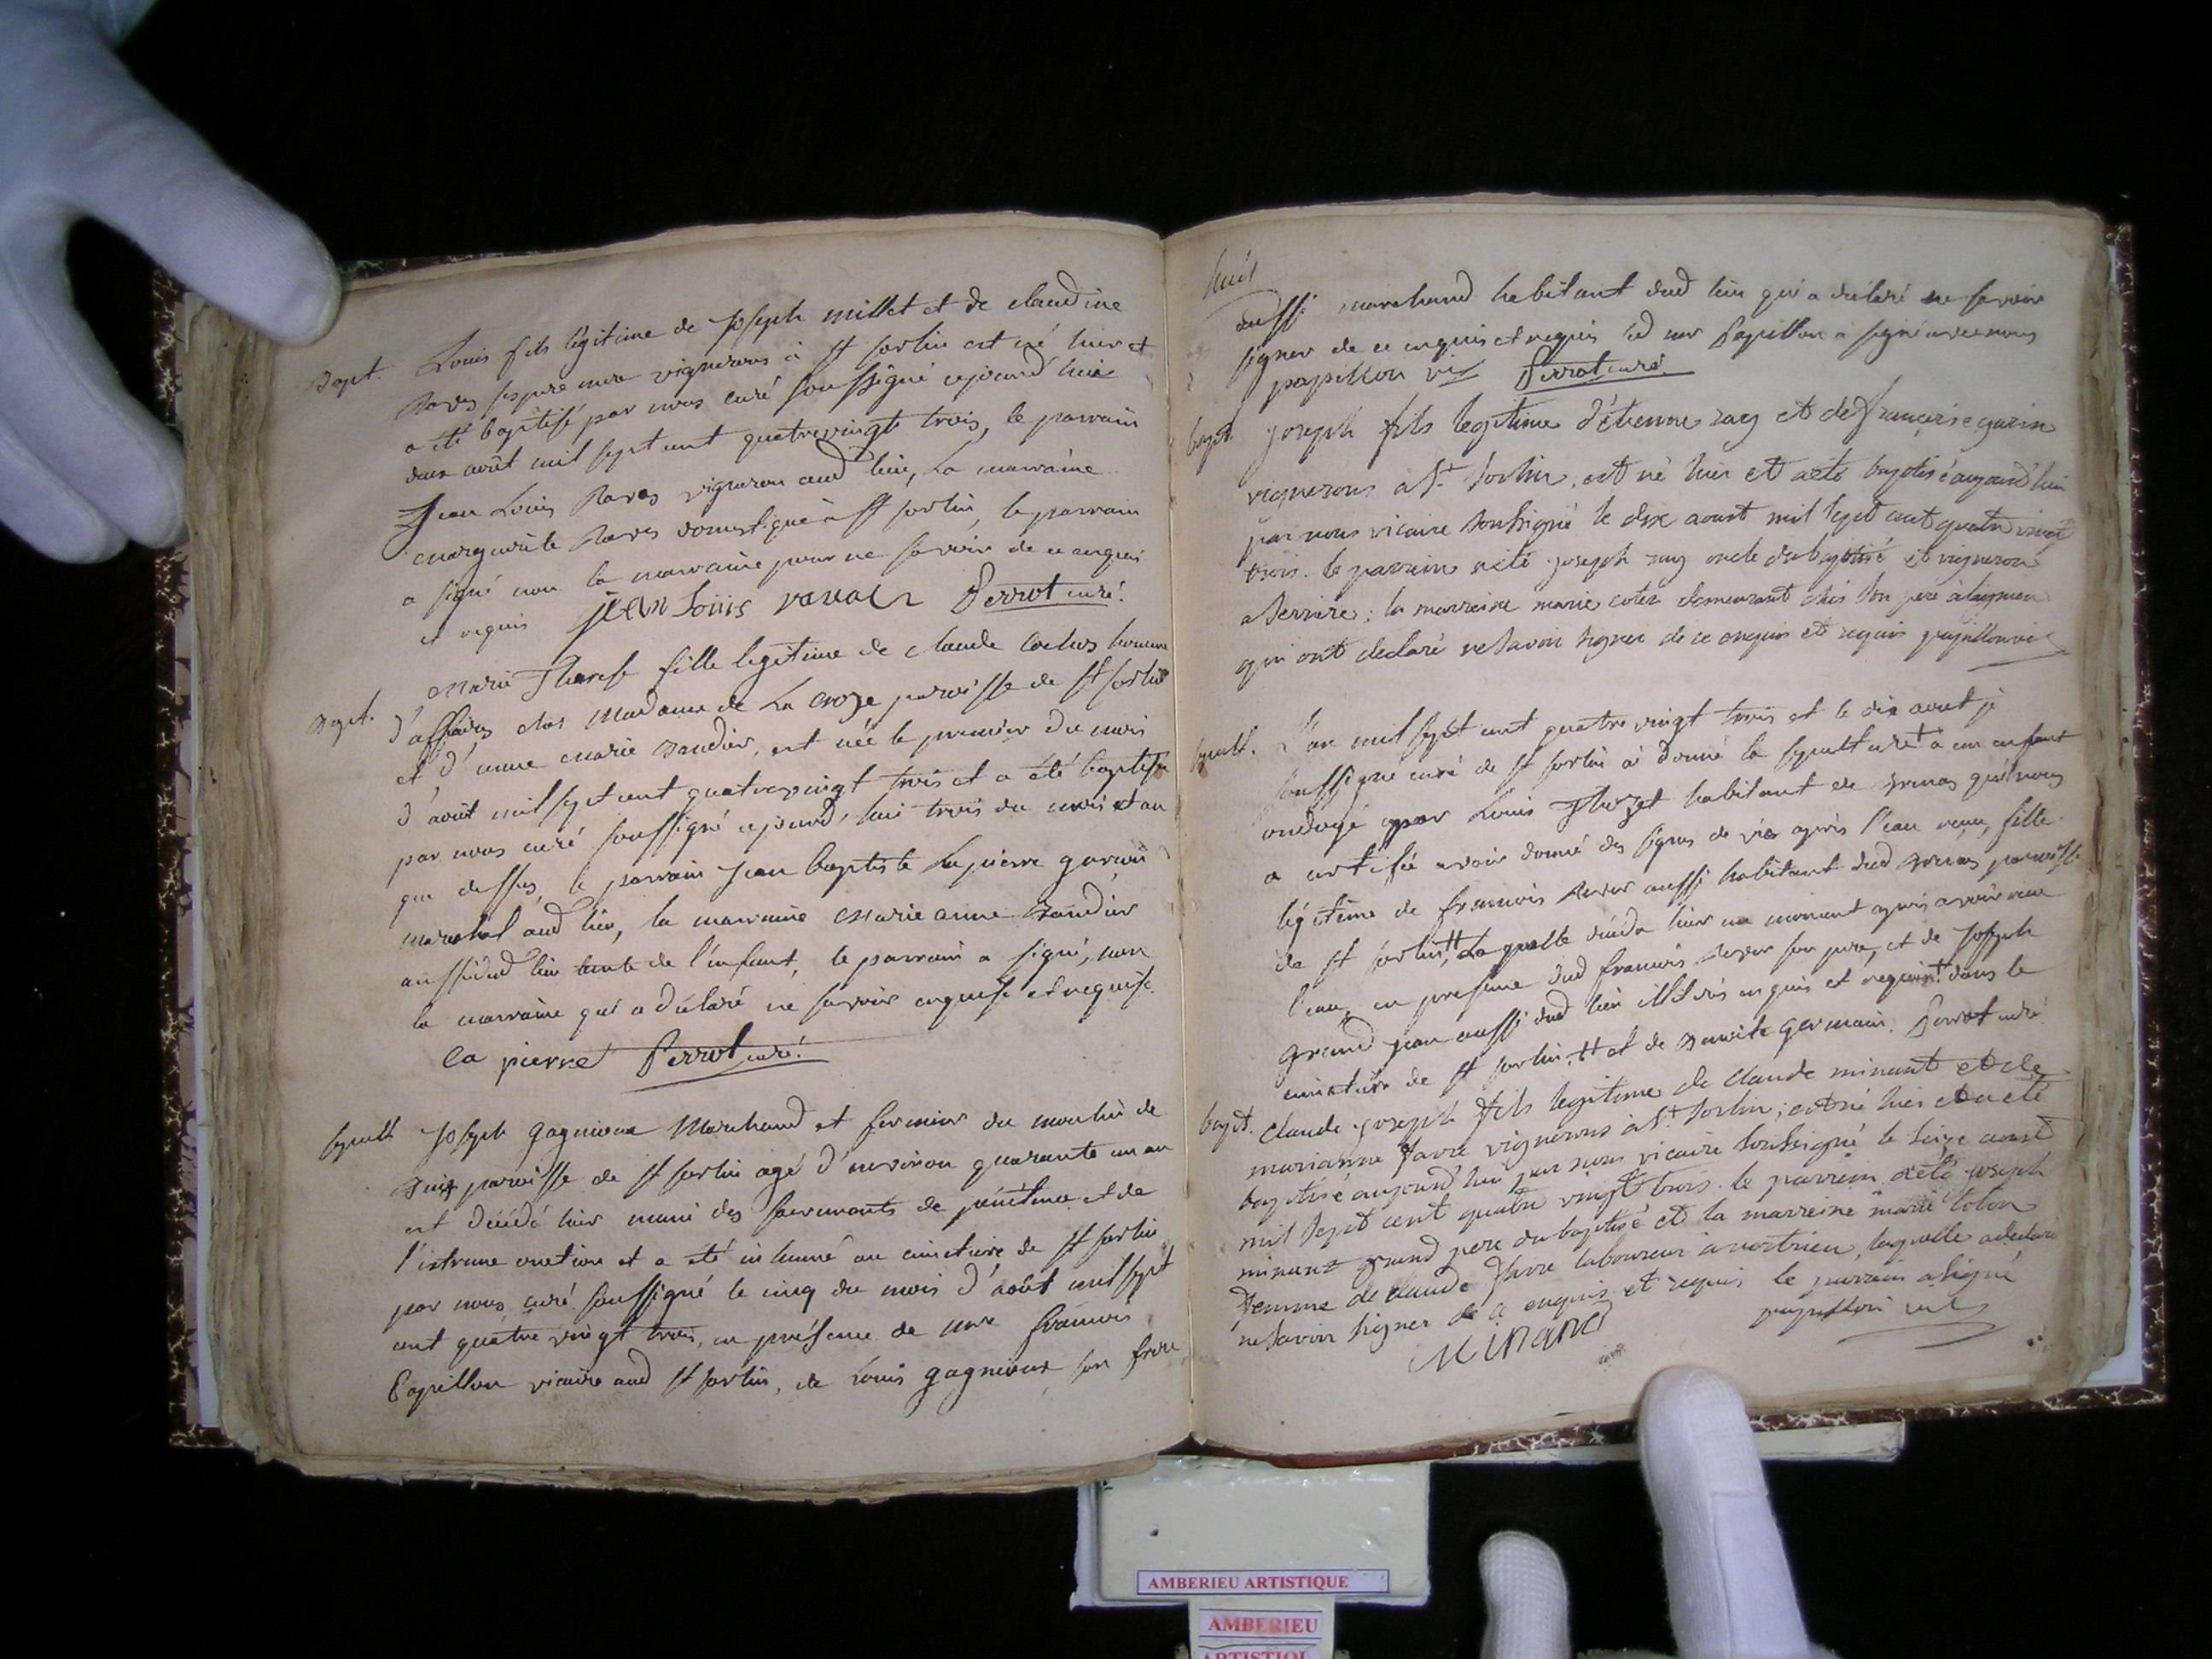 Bapt. Louis fils légitime de Joseph millet et de claudine
ses pere mere vignerons à st sorlin est né hier et
a été baptisé par nous curé soussigné cejourd'huis
deux août mil sept cent quatrevingt trois, le parrain
Jean Louis vigneron aud lieu, La marraine
marguerite domestique à st sorlin, le parrain
a signé non la marraine pour ne savoir de ce enquis
et requis Jean Louis Perrot curé.
Bapt. Marie Therese fille legitime de claude cochus homme
d'affaires chez Madame de La croze paroisse de st sorlin
et d'anne marie baudier, est née le premier du mois
d'août mil sept cent quatrevingt trois et a été baptisée
par nous curé soussigné cejourd'hui trois du mois et an
que dessus, le parrain Jean baptiste Lapierre garçon
marechal aud lieu, la marraine Marie anne Baudier
aussi dud lieu tante de l'enfant, le parrain a signé, non
la marraine qui a déclaré ne savoir enquise et requise.
la pierre Perrot curé.
sepult Joseph gagnieux Marchand et fermier du moulin de
paroisse de st sorlin agé d'environ quarante un an
est décédé hier muni des sacrements de pénitence et de
l'extreme onction et a été inhumé au cimetiere de st sorlin
par nous curé soussigné le cinq du mois d'août mil sept
cent quatre vingt trois, en présence de mre francois
Papillon vicaire aud st sorlin, de Louis gagnieux son frere
huit
aussi marchand habitant dud lieu qui a déclaré ne savoir
signer de ce enquis et requis led mre Papillon a signé avec nous
papillon vic Perrot curé.
bapt. joseph fils legitime d'étienne ray et de françoise garin
vignerons à St. Sorlin, est né hier et a eté baptisé aujourd'hui
par nous vicaire soussigné le dix aoust mil sept cent quatre vingt
trois. le parrein a eté joseph ray oncle du baptisé et vigneron
a Serriere; la marreine marie demeurant chés son pere à lagnieu
qui ont declaré ne savoir signer de ce enquis et requis papillon vic
sepult. L'an mil sept cent quatre vingt trois et le dix aout je
soussigné curé de st sorlin ai donné la sépulture à un enfant
ondoyé par Louis habitant de qui nous
a certifié avoir donné des signes de vie après l'eau reçue, fille
légitime de francois aussi habitant dud paroisse
de st sorlin, Laquelle décéda hier un moment après avoir reçu
l'eau, en presence dud francois son pere, et de Joseph
grand jean aussi dud lieu illitérés enquis et requis dans le
cimetiere de st sorlin et de germain. Perrot curé
bapt. claude joseph fils legitime de claude minant et de
marianne favre vignerons à St. Sorlin; est né hier et a eté
baptisé aujourd'hui par nous vicaire soussigné le seize aoust
mil sept cent quatre vingt trois. le parrein a eté joseph
minant grand pere du baptisé et la marreine marie
femme de claude favre laboureur à vertrieu, laquelle a declaré
ne savoir signer de ce enquis et requis le parrein a signé
minand papillon vic
AMBERIEU ARTISTIQUE
AMBERIEU
ARTISTIQUE